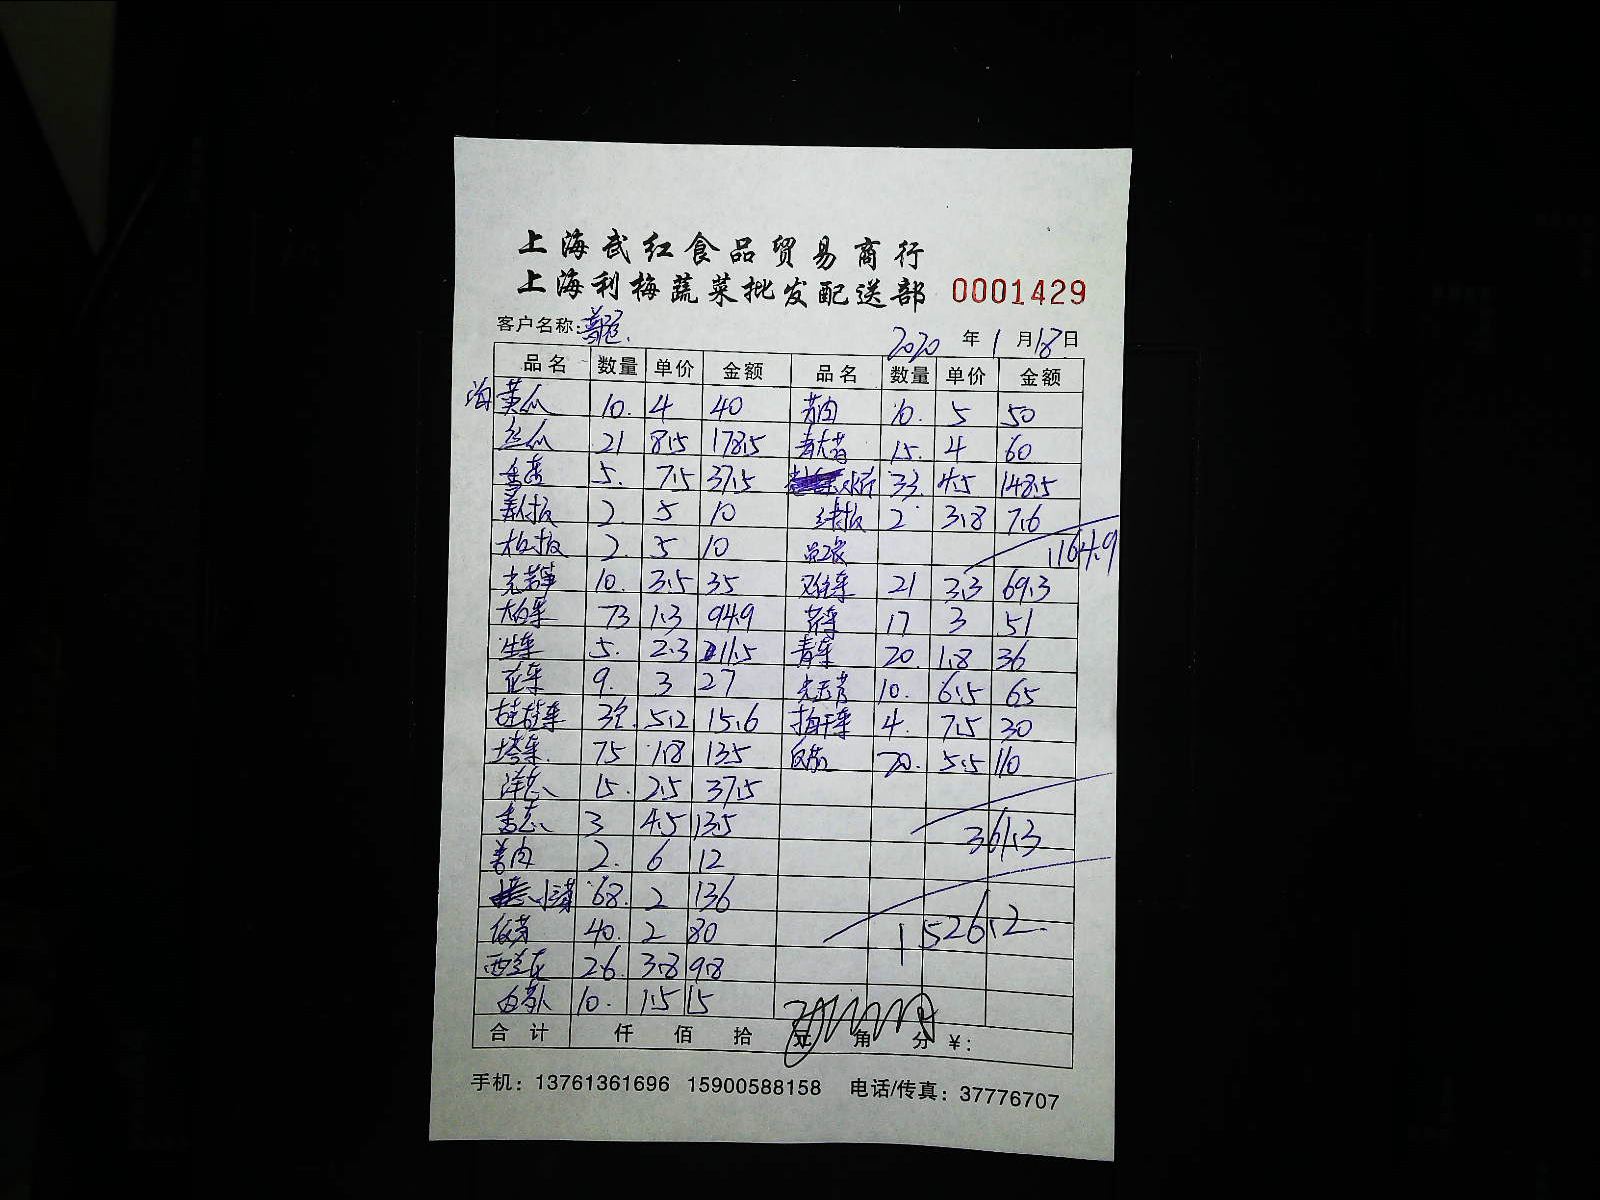 上海武红食品贸易商行
上海利梅蔬菜批发配送部 0001429
客户名称: 2020 年 1 月 18 日
品名 数量 单价 金额 品名 数量 单价 金额
海 黄瓜 10. 4 40 10. 5 50
丝瓜 21 8.5 178.5 15. 4 60
5. 7.5 37.5 33. 4.5 148.5
2. 5 10 2 3.8 7.6
2. 5 10 1164.9
10. 3.5 35 21 3.3 69.3
大白菜 73 1.3 94.9 17 3 51
生菜 5. 2.3 11.5 青菜 20. 1.8 36
9. 3 27 10. 6.5 65
娃娃菜 3个. 5.2 15.6 4. 7.5 30
塔菜. 75 1.8 135 20. 5.5 110
洋葱 15. 2.5 37.5
香葱 3 4.5 13.5 361.3
2. 6 12
68. 2 136
40. 2 80 1526.2.
西兰花 26. 3.8 9.8
白萝卜 10. 1.5 15
合计 仟 佰 拾 元 角 分 ¥:
手机: 13761361696 15900588158 电话/传真: 37776707